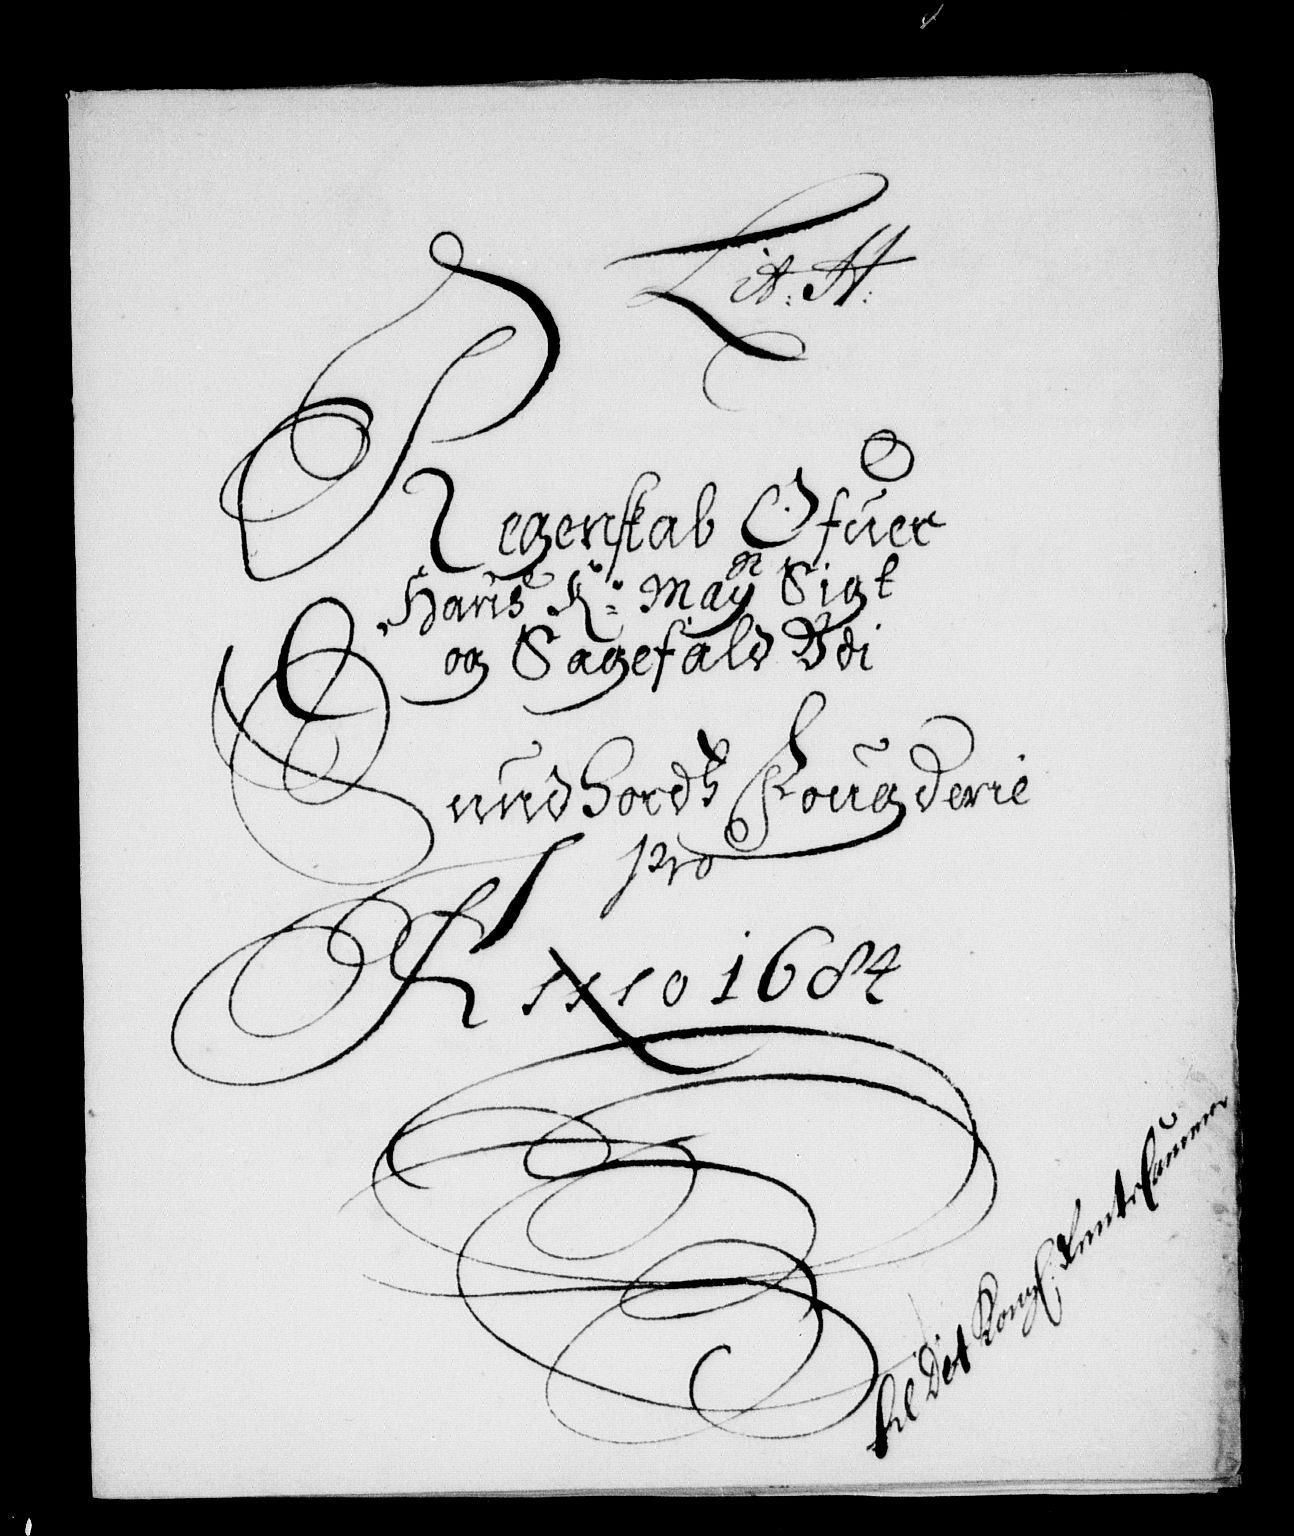 Lit: H:
Regenskab Ofuer
Hans K: Mayts Sigt
og Sagefald Vdi
Sundhords Fougderie
pro
Anno 1684
til Det Kongl: Rentekammer